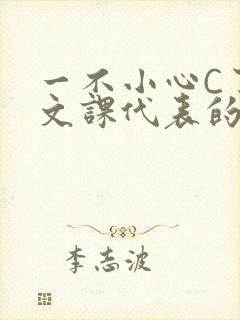 一不小心C
文課代表的
李志波